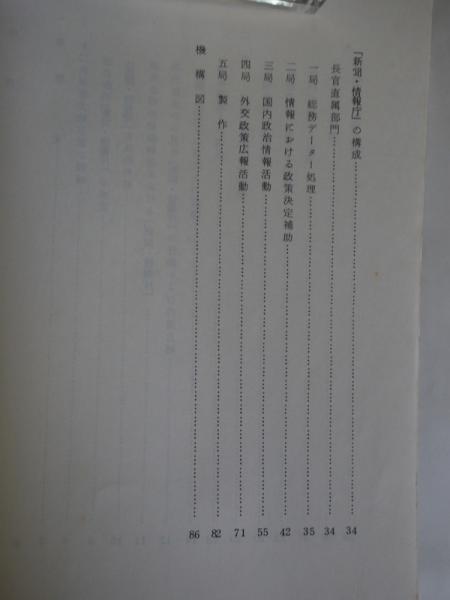 「新聞・情報庁」の構成……34
長官直属部門……34
一局 総務データー処理……35
二局 情報における政策決定補助……42
三局 国内政治情報活動……55
四局 外交政策広報活動……71
五局 製作……82
機構図……86